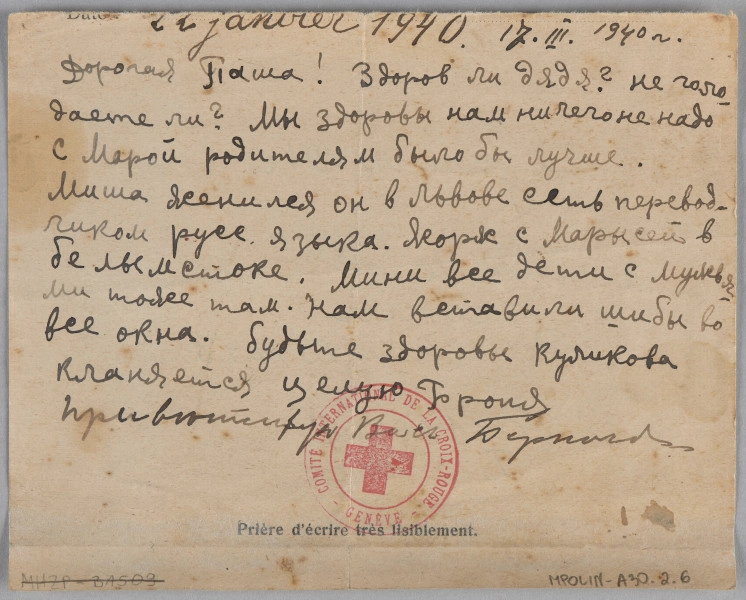 Date
22 janvier 1940. 17. III. 1940 г.
Дорогая Паша! Здоров ли дядя? не голо-
даете ли? Мы здоровы нам ничего не надо
с Марой родителям было бы лучше.
Миша женился он в Львове есть перевод-
чиком русс. языка. Жорж с Марысей в
белымстоке. Мини все дети с мужья
ми тоже там. Нам вставили шибы во
все окна. Будьте здоровы Куликова
кланяется целую Фроня
Вась
COMITÉ INTERNATIONAL DE LA CROIX-ROUGE
- GENÈVE -
Prière d'écrire très lisiblement.
MHŻP-B1503
MPOLIN-A30.2.6